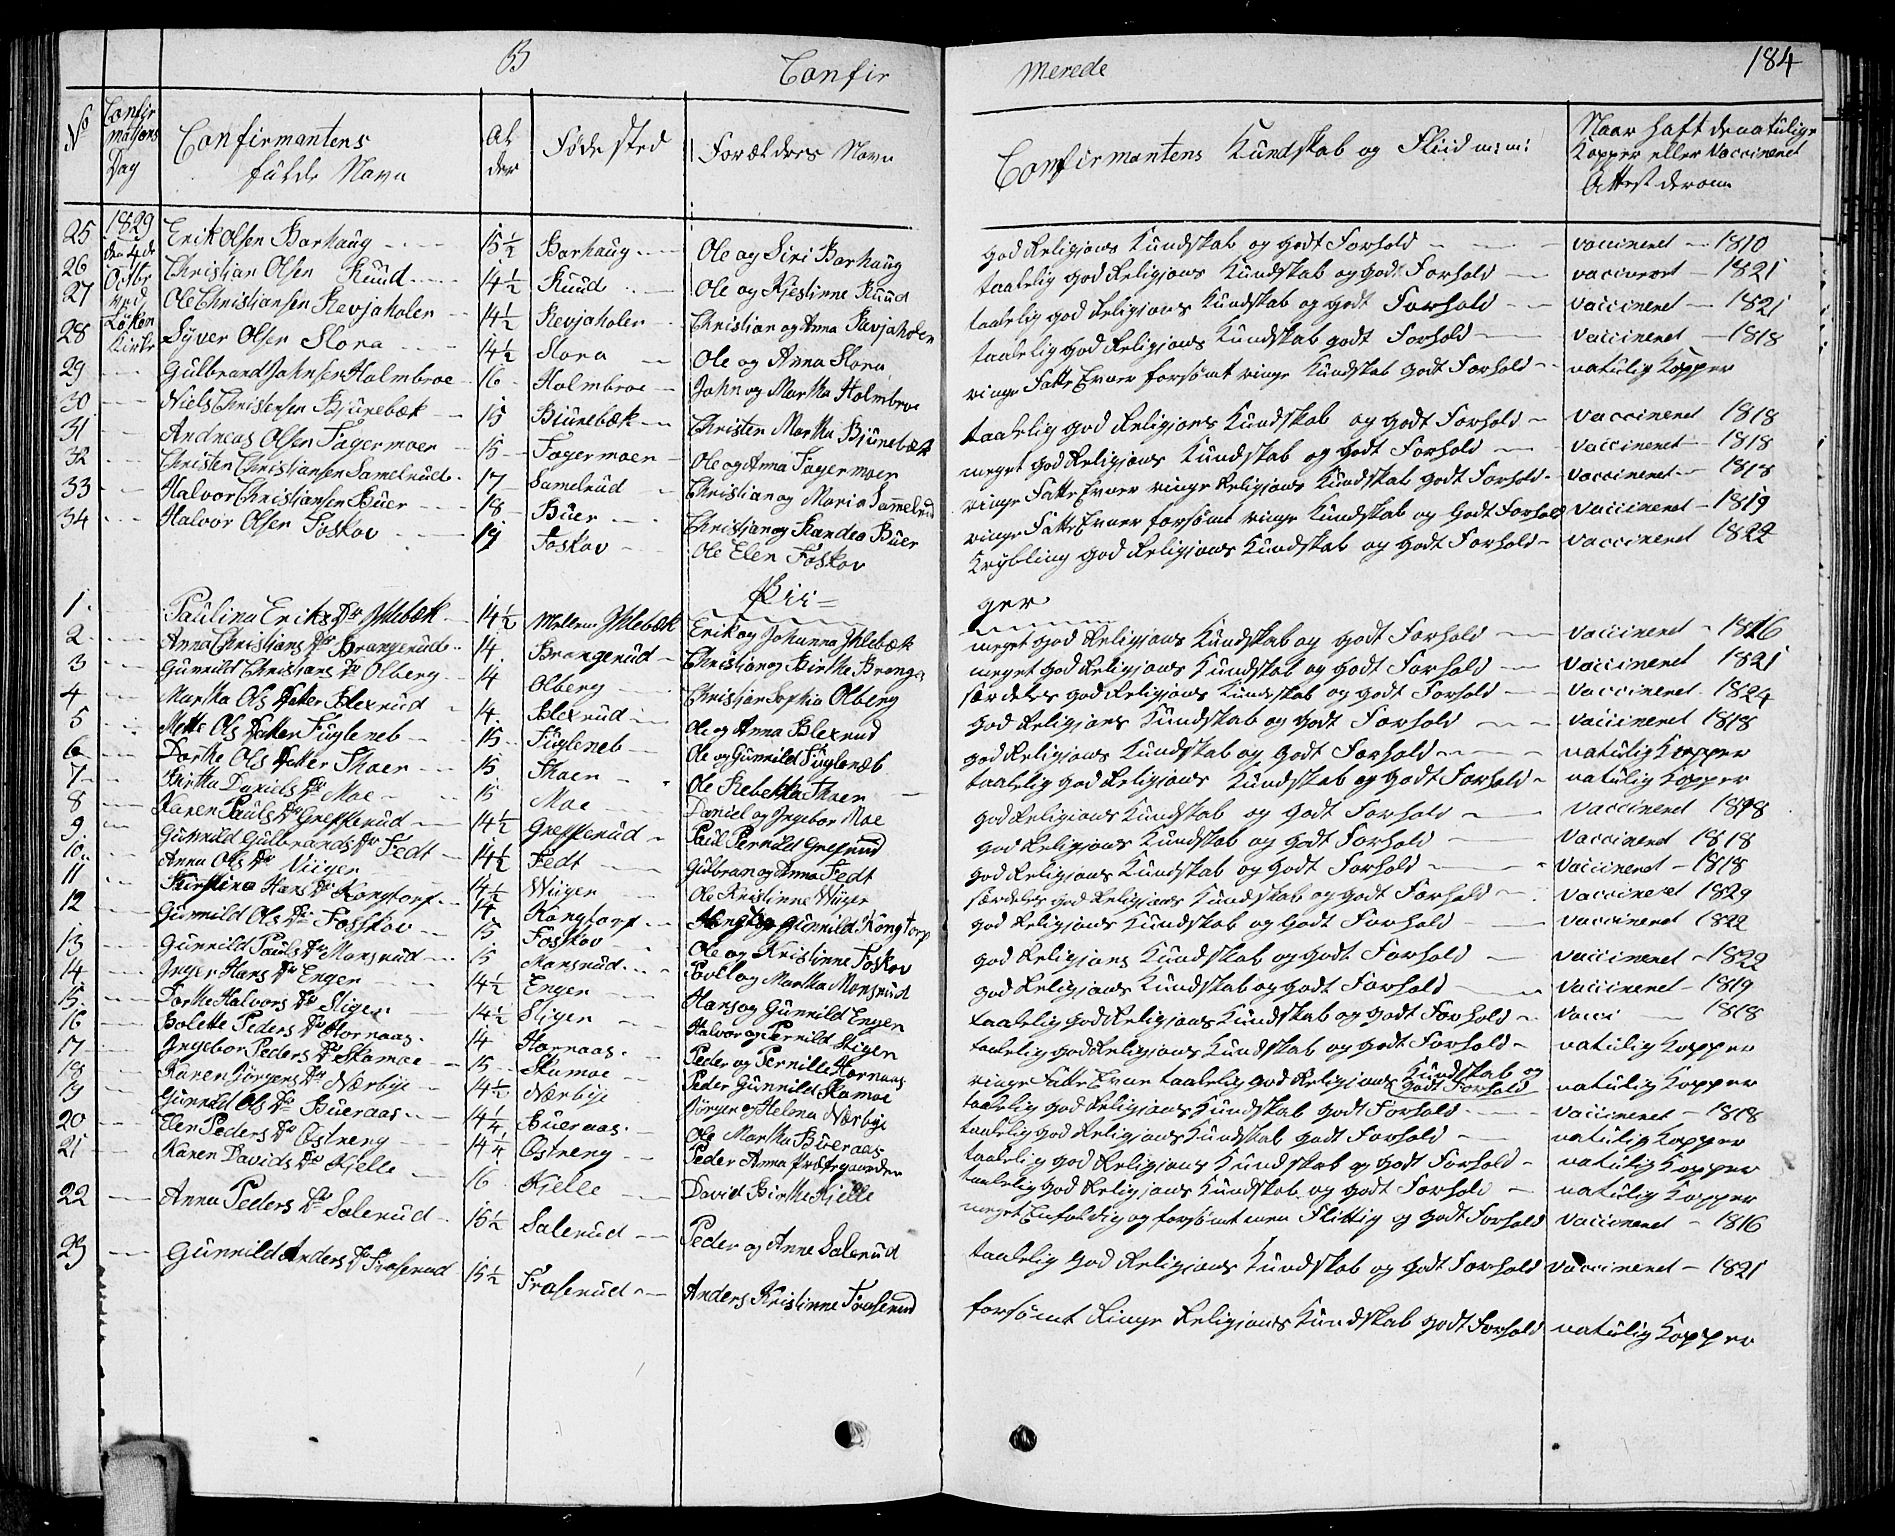 B
Confir
merede
184
No
Confirmations Dag
Confirmantens fulde Navn
Alder
Fødested
Forældres Navn
Confirmantens Kundskab og Fliid m: m:
Naar haft de natulige Kopper eller Vaccineret Attest derom
1829 den 4de Octbr ved Løken Kirke
25 Erik Olsen Barhaug 15½ Barhaug Ole og Siri Barhaug god Religions Kundskab og godt Forhold vaccineret 1810
26 Christian Olsen Ruud 14½ Ruud Ole og Kjestinne Ruud taalelig god Religions Kundskab og godt Forhold vaccineret 1821
27 Ole Christiansen Revjaholen 14½ Revjaholen Christian og Anna Revjaholen taalelig god Religions Kundskab og godt Forhold vaccineret 1821
28 Syver Olsen Slora 14½ Slora Ole og Anna Slora taalelig god Religions Kundskab godt Forhold vaccineret 1818
29 Gulbrand Johnsen Holmbroe 16 Holmbroe John og Martha Holmbroe ringe Fatte Evner forsømt ringe Kundskab godt Forhold natulig Kopper
30 Niels Christensen Bjünebæk 15 Biünebæk Christen Martha Bjünebæk taalelig god Religions Kundskab og godt Forhold vaccineret 1818
31 Andreas Olsen Fagermoen 15 Fagermoen Ole og Anna Fagermoen meget god Religions Kundskab og godt Forhold vaccineret 1818
32 Christen Christiansen Samelrud 17 Samelrud Christian og Maria Samelrud ringe Fatte Evner ringe Religions Kundskab godt Forhold vaccineret 1818
33 Halvor Christiansen Büer 18 Büer Christian og Randea Büer ringe Fatte Evner forsømt ringe Kundskab og Godt Forhold vaccineret 1819
34 Halvor Olsen Foskov 19 Foskov Ole Elen Foskov Krybling god Religions Kundskab og godt Forhold vaccineret 1822
Pii=
ger
1 Paulina Eriks Dr Ihlebæk 14½ Mellem Ihlebæk Erik og Johanna Ihlebæk meget god Religions Kundskab og godt Forhold vaccineret 1816
2 Anna Christians Dr Brangerud 14 Brangerud Christian og Birthe Brange meget god Religions Kundskab og godt Forhold vaccineret 1821
3 Gunnild Christians Dr Olberg 14 Olberg Christian Sophia Olberg særdeles god Religions Kundskab og godt Forhold vaccineret 1824
4 Martha Ols Datter Blexrud 14 Blexrud Ole og Anna Blexrud god Religions Kundskab og godt Forhold vaccineret 1818
5 Mette Ols Datter Fugleneb 15 Fugleneb Ole og Gunnild Fuglenæb god Religions Kundskab og godt Forhold natulig Kopper
6 Dorthe Ols Datter Thaer 15 Thaer Ole Rebekka Thaer taalelig god Religions Kundskab og godt Forhold natulig Kopper
7 Birthe Daniels Dr Moe 15 Moe Daniel og Ingebor Moe god Religions Kundskab og godt Forhold vaccineret 1818
8 Karen Pauls Dr Grefslerud 14½ Grefslerud Paul Pernild Grefsrud god Religions Kundskab og godt Forhold vaccineret 1818
9 Gunnild Gulbrands Dr Fedt 14½ Fedt Gulbran og Anna Fedt god Religions Kundskab og godt Forhold vaccineret 1818
10 Anna Ols Dr Wiiger 14½ Wiiger Ole Kristinne Wiiger særdeles god Religions Kundskab og godt Forhold vaccineret 1829
11 Kirstina Hans Dr Kongtorp 14 Kongtorp Hans og Gunnild Kongtorp god Religions Kundskab og godt Forhold vaccineret 1822
12 Gunnild Ols Dr Fosskov 15 Foskov Ole og Kristinne Foskov god Religions Kundskab og godt Forhold vaccineret 1822
13 Gunnild Pauls Dr Monsrud 15 Monsrud Povel og Martha Monsrud god Religions Kundskab og godt Forhold vaccineret 1819
14 Inger Hans Dr Enger 14½ Enger Hans og Gunnild Engen taalelig god Religions Kundskab og godt Forhold vacci 1818
15 Dorthe Halvors Dr Stigen 14½ Stigen Halvor og Pernild Stigen taalelig god Religions Kundskab og godt Forhold natulig Kopper
16 Bolette Peders Dr Hornaas 14 Hornaas Peder og Pernille Hornaas ringe Fatte Evne taalelig god Religions Kundskab og godt Forhold natulig Kopper
17 Ingebor Peders Dr Skamoe 15 Skamoe Peder Gunnild Skamoe taalelig god Religions Kundskab godt Forhold vaccineret 1818
18 Karen Jørgens Dr Nærbye 14½ Nærbye Jørgen og Helena Nærbye taalelig god Religions Kundskab godt Forhold natulig Kopper
19 Gunnild Ols Dr Bueraas 14¼ Bueraas Ole Martha Bueraas taalelig god Religions Kundskab og godt Forhold natulig Kopper
20 Elen Peders Dr Østreng 14¼ Østreng Peder Anna Præstegaarden taalelig god Religions Kundskab og godt Forhold natulig Kopper
21 Karen Davids Dr Kjelle 16 Kjelle David Birthe Kjelle meget Enfoldig og forsømt men Flittig og godt Forhold vaccineret 1816
22 Anna Peders Dr Solerud 15½ Solerud Peder og Anne Solerud taalelig god Religions Kundskab og godt Forhold vaccineret 1821
23 Gunnild Anders Dr Fraserud 15½ Fraserud Anders Kristinne Fraserud forsømt Ringe Religions Kundskab godt Forhold natulig Kopper